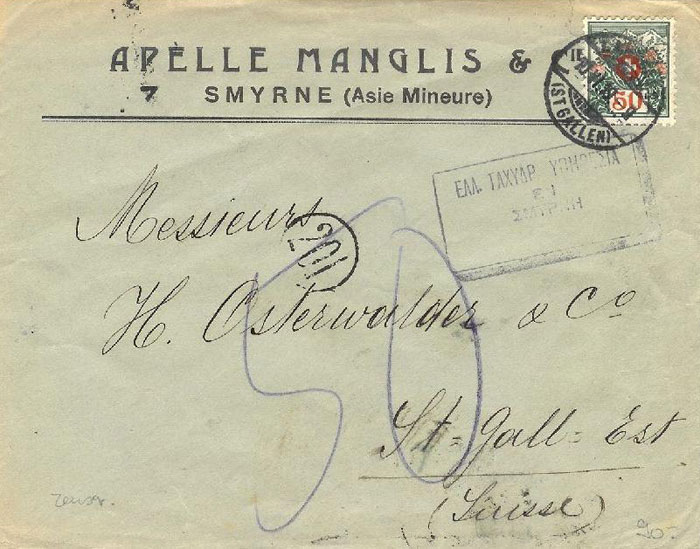 APELLE MANGLIS &
7 SMYRNE (Asie Mineure)
50
(ST GALLEN)
ΕΛΛ. ΤΑΧΥΔΡ. ΥΠΗΡΕΣΙΑ
ΕΝ
ΣΜΥΡΝΗ
Messieurs
201
H. Osterwalder & Co
50
St-Gall-Est
(Suisse)